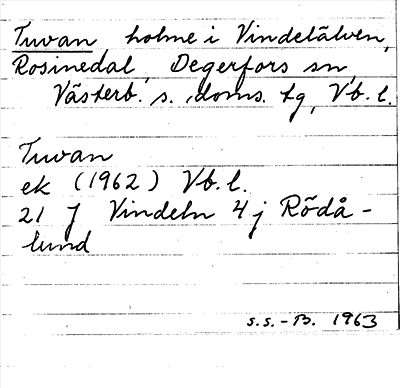 Tuvan, holme i Vindelälven,
Rosinedal, Degerfors sn,
Västerb. s. doms. tg, Vb. l.
Tuvan
ek (1962) Vb. l.
21 J Vindeln 4 j Rödå-
lund
s.s. - B. 1963